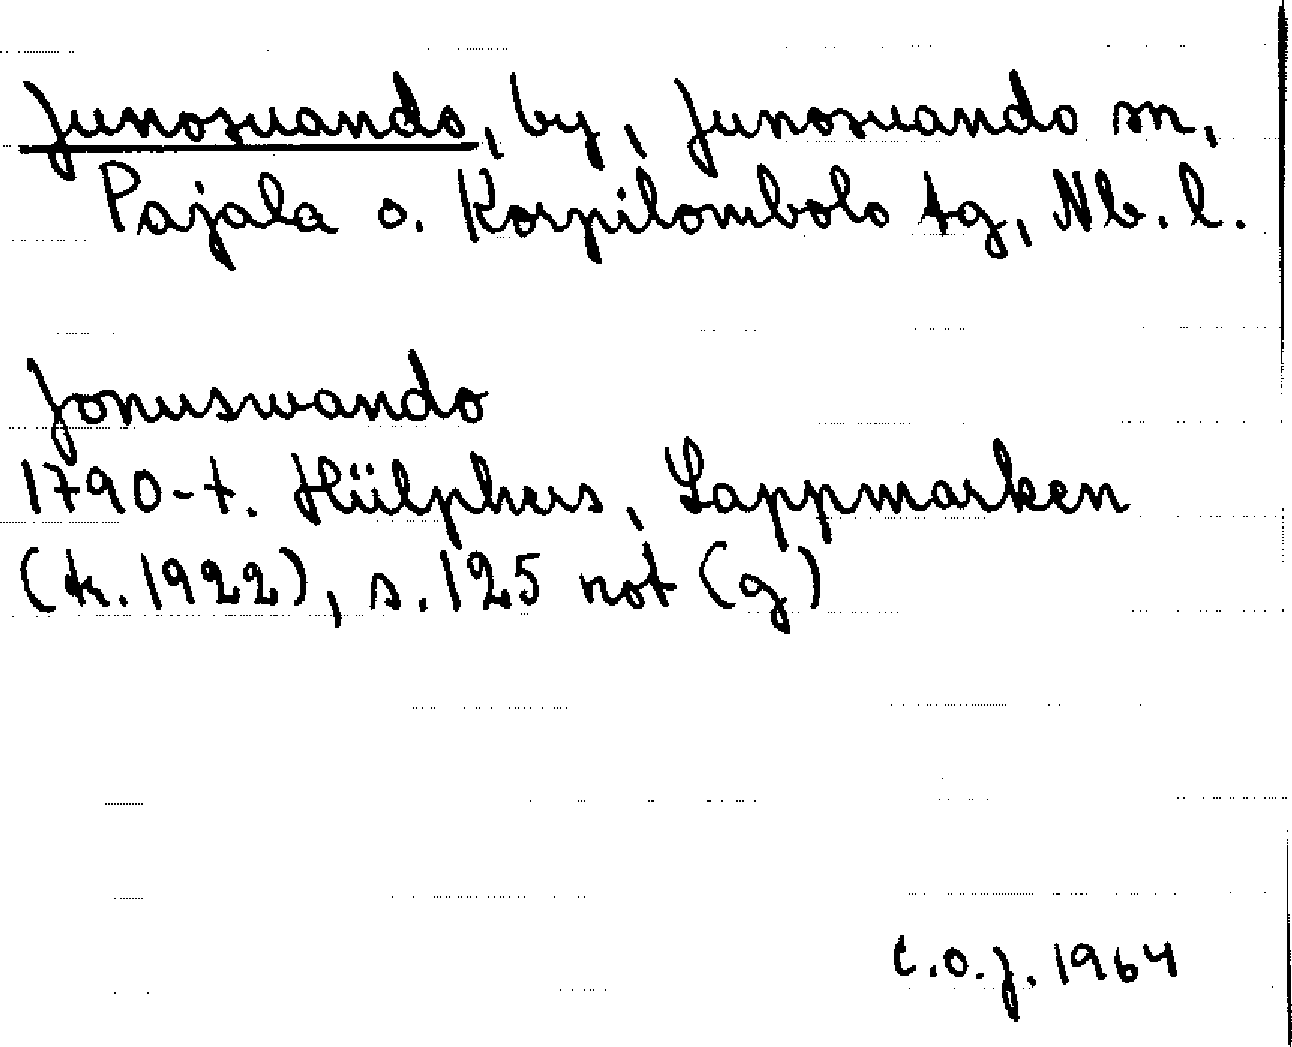 Junosuando, by, Junosuando sn,
Pajala o. Korpilombolo tg, Nb. l.
Jonuswando
1790-t. Hülphers, Lappmarken
(tr. 1922), s. 125 not (g)
C.O.J. 1964